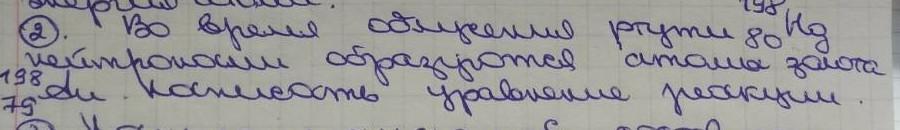 ②. Во время облучения ртути ¹⁹⁸₈₀Hg
нейтронами образуются атома золота
¹⁹⁸₇₉Au. Написать уравнение реакции.